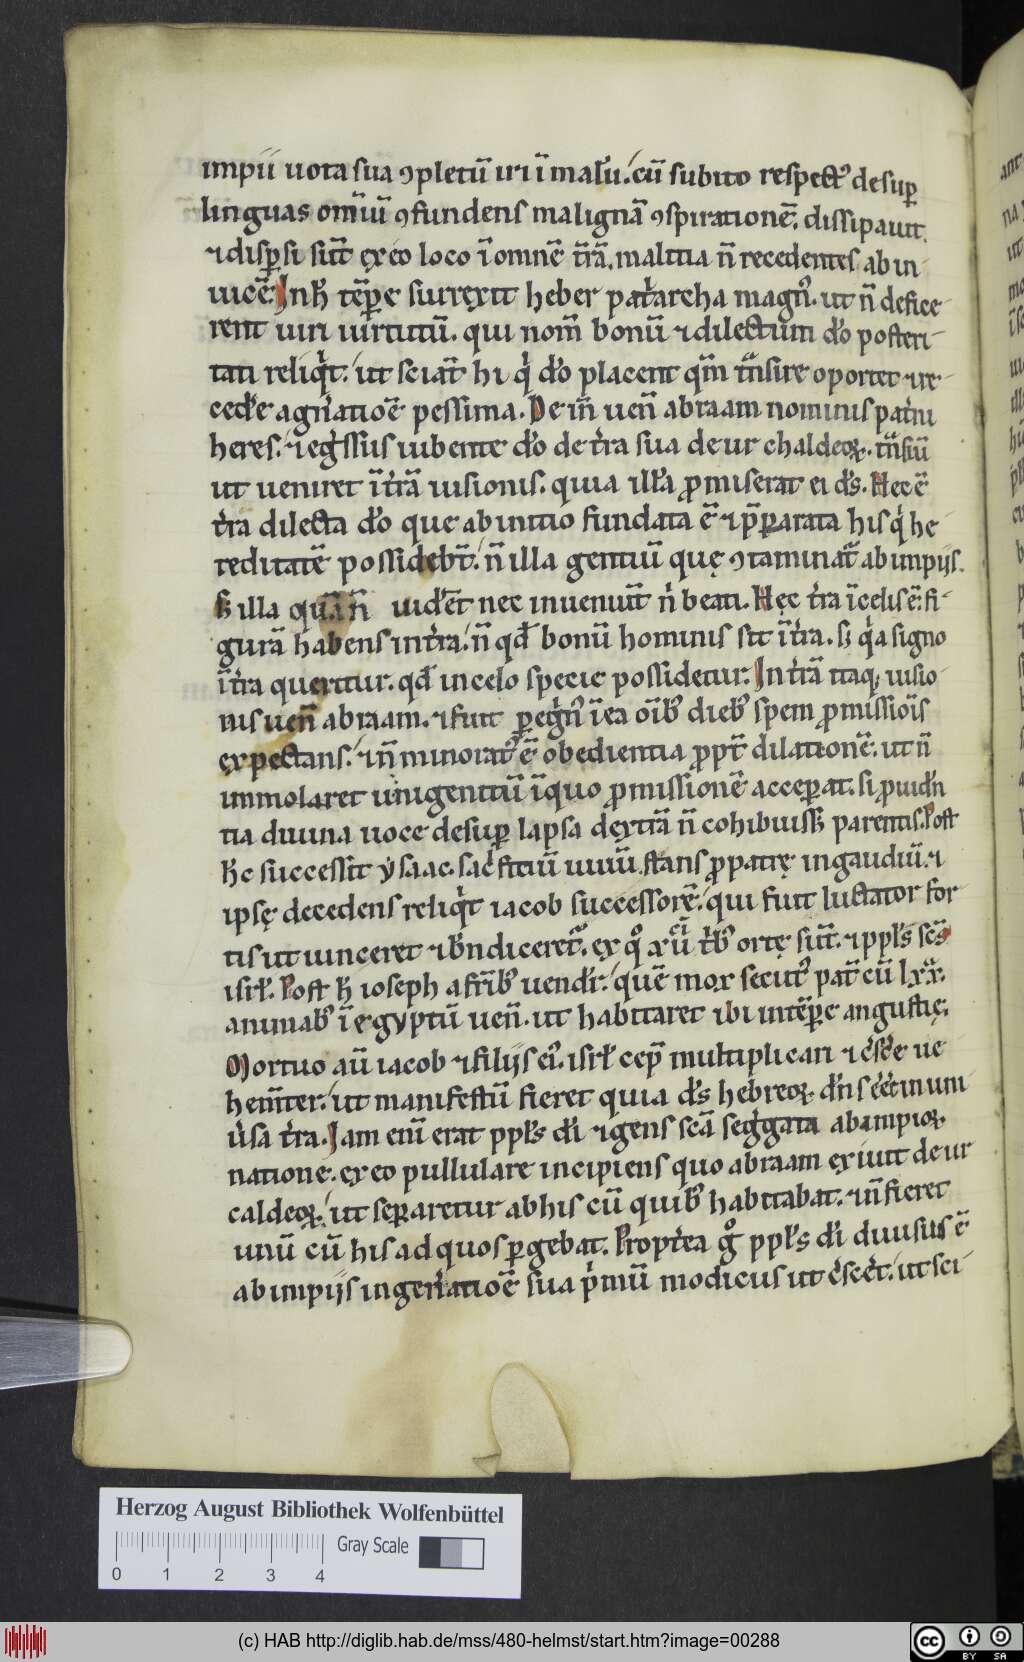 impii uota sua ꝯpletū iri ī malū. cū subito respectꝰ desuꝑ
linguas om̄iū ꝯfundens malignā ꝯspirationē. dissipauit.
⁊ disꝑsi sūt ex eo loco ī omnē t̄rā. malitia n̄ recedentes ab in
uicē. In h̄ tēꝑe surrexit heber pat̓archa magnꝰ. ut n̄ defice
rent uiri uirtutū. qui nom̄ bonū ⁊ dilectum do̓ posteri
tati reliqͥt. ut sciāt hi qͥ do̓ placent qm̄ tͣnsire oportet ⁊ re
ced̓e a gn̓atioē pessima. De in̄ uen̄ abraam nominis pat̓ni
heres. ⁊ eg̓ssus iubente do̓ de t̓ra sua de ur chaldeoꝝ. tͣnsiū
ut ueniret ī t̓rā uisionis. quia illā promiserat ei ds̄. Hec ē
t̓ra dilecta do̓ que ab initio fundata ē ⁊ p̄ꝑarata his qͥ he
reditatē possidebt̄. n̄ illa gentiū quę ꝯtaminat̄ ab impijs.
S; illa quā n̄ uid̓et̄ nec inueniūt n̓ beati. Hęc t̓ra ī celis ē. fi
gurā habens in t̓ra. n̄ qd̄ bonū hominis sit ī t̓ra. s; qͥa signo
ī t̓ra queritur. qd̄ in celo specie possidetur. In t̓rā itaq; uisio
nis uen̄ abraam. ⁊ fuit ꝑeg̓nꝰ ī ea oīb; dieb; spem ꝓmissiōis
expectans. ⁊ n̄ minoratꝰ ē obedientia ꝓpt̄ dilationē. ut n̄
immolaret unigenitū ī quo ꝓmissionē acceꝑat. si ꝓuid̓n
tia diuina uoce desuꝑ lapsa dextrā n̄ cohibuiss; parentis. Post
h̓c successit ysaac. sac̓ficiū uiuū stans ꝓ patrę in gaudiū. ⁊
ipsę decedens reliqͥt iacob successorē. qui fuit luctator for
tis ut uinceret ⁊ bn̄diceretᷣ. ex qͦ xii t̓bꝰ ortę sūt. ⁊ ppl̓s scs̄
isrl̓. Post h̄ ioseph a frīb; uendr̓. quē mox secutꝰ pat̄ cū lxx.
animab; ī egyptū uen̄. ut habitaret ibi in tēꝑe angustię.
Mortuo aū iacob ⁊ filijs eiꝰ. isrl̓ cep̄ multiplicari ⁊ c̓sc̓e ue
hem̄ter. ut manifestū fieret quia ds̄ hebreoꝝ. dn̄s ēet in um
u̓sa t̓ra. Iam enī erat ppl̓s di̓ ⁊ gens scā seg̓gata ab impioꝝ
natione. ex eo pullulare incipiens quo abraam exiuit de ur
caldeoꝝ. ut separaretur ab his cū quib; habitabat. ⁊ n̄ fieret
unū cū his ad quos ꝑgebat. Propt̓ea gͦ ppl̓s di̓ diuisus ē
ab impijs in gen̓atioē sua p̓mū modicus ut c̓sc̓et. ut sci
Herzog August Bibliothek Wolfenbüttel
Gray Scale
0 1 2 3 4
(c) HAB http://diglib.hab.de/mss/480-helmst/start.htm?image=00288
cc BY SA